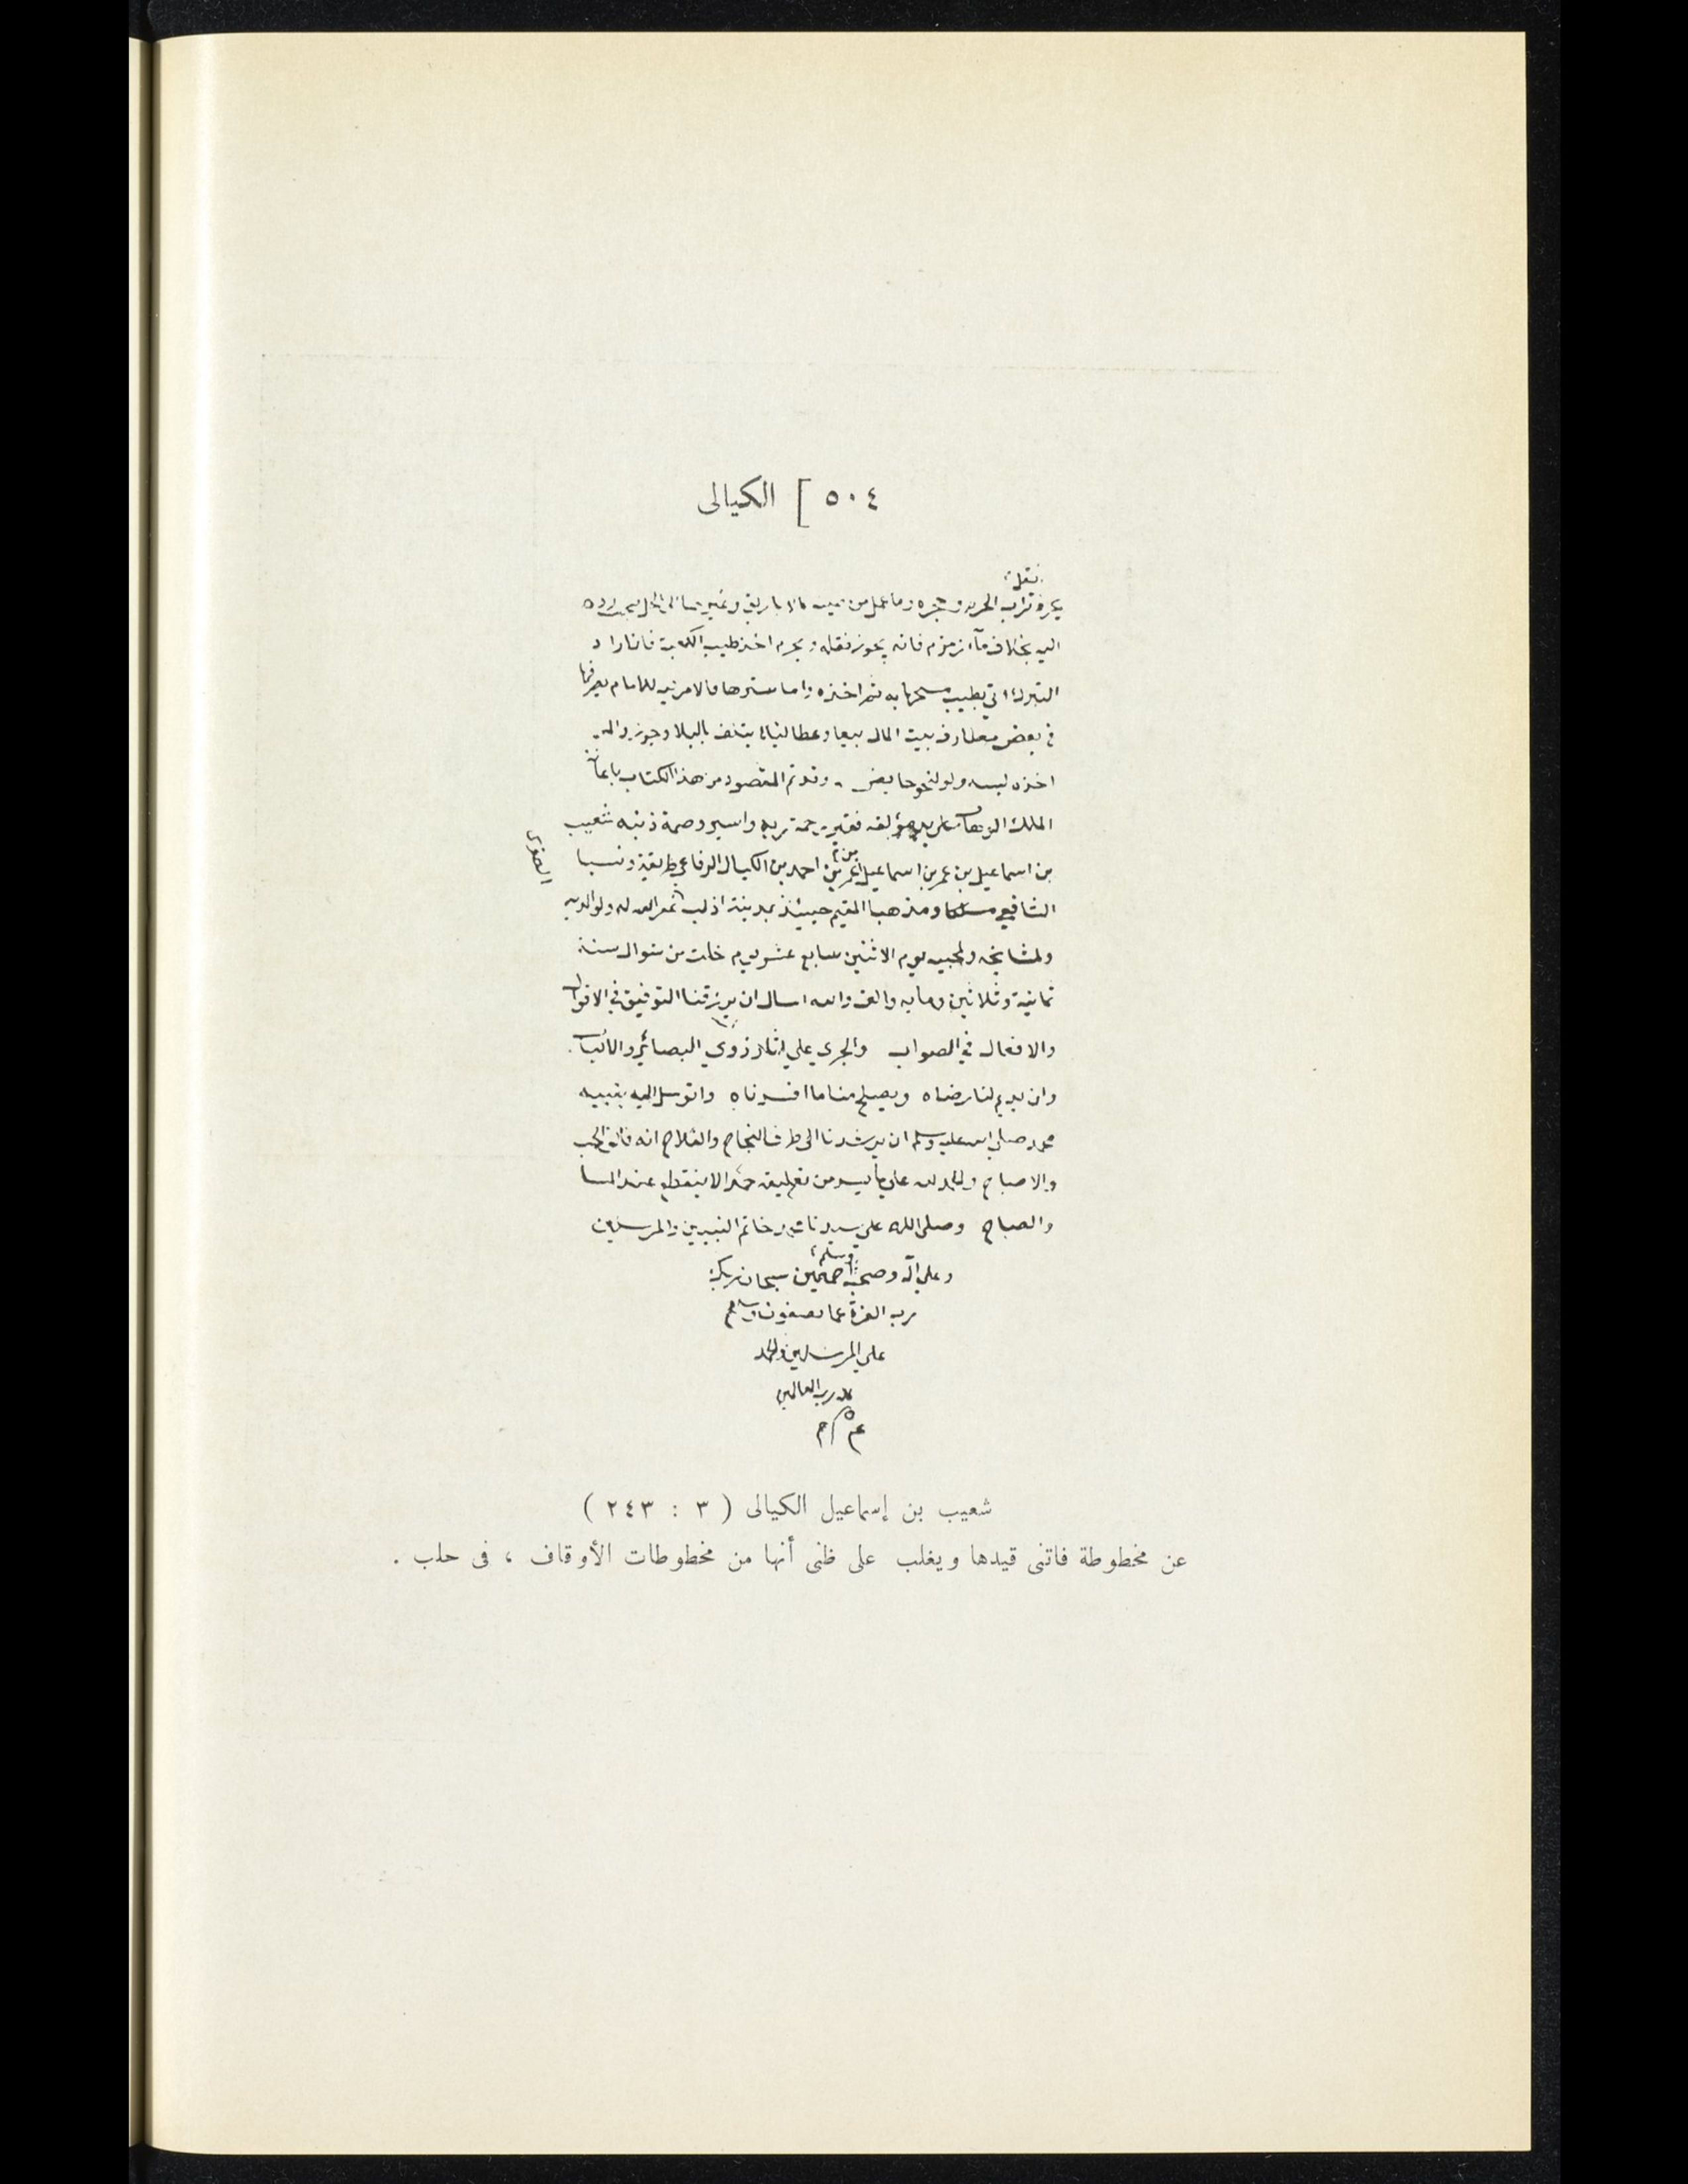 ٥٠٤ [ الكيالى
نقل
تراب الحرم و وما عمل من
اليه بخلاف مآء زمزم فانه يجوز نقله ويحرم اخذ طيب الكعبة فان اراد
التبرك اتي بطيب مسحها به ثم اخذه واما سترها فالامر فيه للامام يصرفها
في بعض مصارف بيت المال بيعا وعطا ليلا يتلف بالبلا وجوزوا لمن
اخذه لبسه ولو لنحو حايض . وقد تم المقصود من هذا الكتاب باعانة
الملك الوهاب على يد مؤلفه فقير رحمة ربه واسير وصمة ذنبه شعيب
بن اسماعيل بن عمر بن اسماعيل بن عمر بن احمد بن الكيال الرفاعي طريقة ونسبا
الشافعي ومذهبا المقيم حينئذ بمدينة ادلب غفر الله له ولوالديه
ولمشايخه ولمحبيه يوم الاثنين سابع عشر يوم خلت من شوال سنة
ثمانية وثلاثين ومايه والف والله اسال ان يرزقنا التوفيق في الاقوال
والافعال في الصواب والجري علي اثار ذوي البصائر والالباب .
وان يديم لنا رضاه ويصلح منا ما افسدناه واتوسل اليه بنبيه
محمد صلي الله عليه وسلم ان يرشدنا الى طرق النجاح والفلاح انه فالق الحب
والاصباح والحمد لله على ما يسر من تعليقه حمدا لا ينقطع عند المسا
والصباح وصلى الله على سيدنا محمد خاتم النبيين والمرسلين
وعلي اله وصحبه اجمعين وسلم سبحان ربك
رب العزة عما يصفون وسلام
علي المرسلين والحمد
لله رب العالمين
شعيب بن إسماعيل الكيالى ( ٣ : ٢٤٣ )
عن مخطوطة فاتنى قيدها ويغلب على ظنى أنها من مخطوطات الأوقاف ، فى حلب .